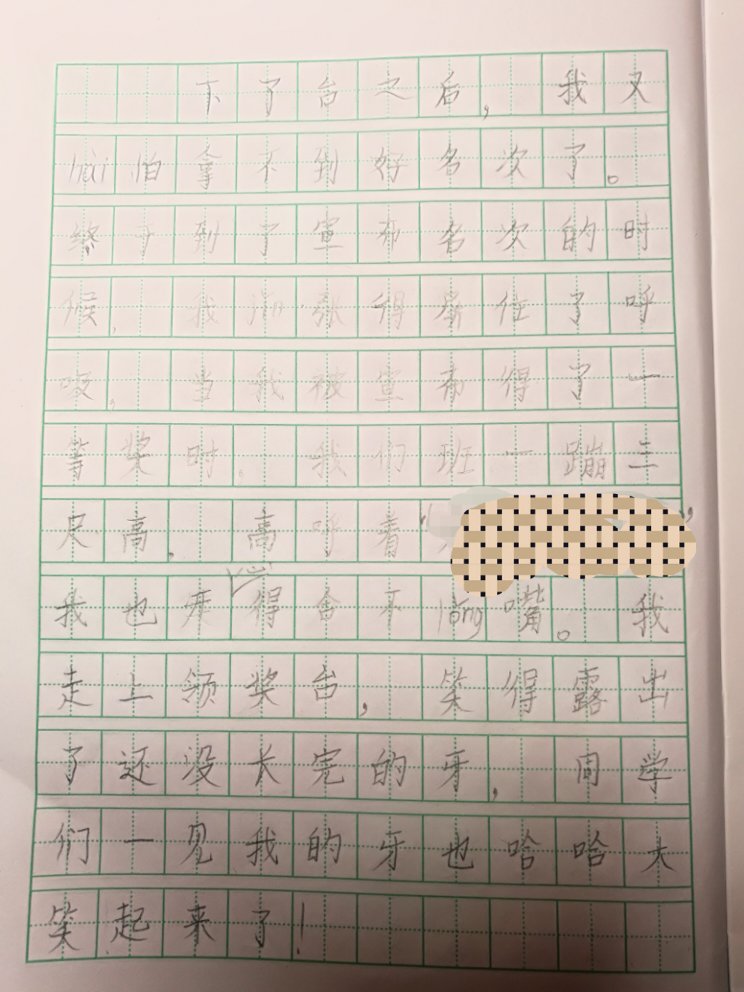 下了台之后，我又
hài怕拿不到好名次了。
终于到了宣布名次的时
候，我jǐn张得屏住了呼
吸，当我被宣布得了一
等奖时。我们班一蹦三
尺高，高呼着“
我也开心得合不lǒng嘴。我
走上领奖台，笑得露出
了还没长完的牙，同学
们一见我的牙也哈哈大
笑起来了！